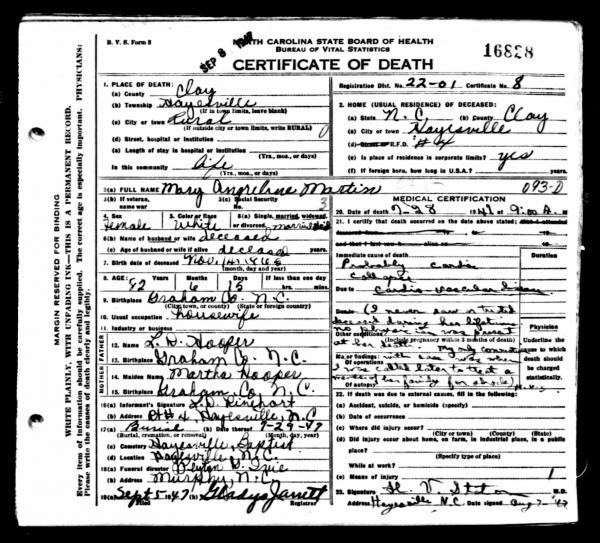 B. V. S. Form 8
SEP 8 1947
NORTH CAROLINA STATE BOARD OF HEALTH
BUREAU OF VITAL STATISTICS
16828
CERTIFICATE OF DEATH
Registration Dist. No. 22-01 Certificate No. 8
MARGIN RESERVED FOR BINDING
WRITE PLAINLY, WITH UNFADING INK—THIS IS A PERMANENT RECORD.
Every item of information should be carefully supplied. The correct age is especially important. PHYSICIANS:
Please write the causes of death clearly and legibly.
1. PLACE OF DEATH:
(a) County Clay
(b) Township Hayesville
(If in town limits, leave blank)
(c) City or town Rural
(If outside city or town limits, write RURAL)
(d) Street, hospital or institution
(e) Length of stay in hospital or institution
(Yrs., mos., or days)
In this community Life
(Yrs., mos., or days)
2. HOME (USUAL RESIDENCE) OF DECEASED:
(a) State N. C. (b) County Clay
(c) City or town Hayesville
(d) Street or R.F.D. #4
(e) Is place of residence in corporate limits? yes
(f) If foreign born, how long in U.S.A.? Yrs.
3(a) FULL NAME Mary Angeline Martin 093-D
3(b) If veteran, name war
3(c) Social Security No. 3
4. Sex Female
5. Color or Race White
6(a) Single, married, widowed, or divorced married
6(b) Name of husband or wife deceased
6(c) Age of husband or wife if alive deceased
7. Birth date of deceased Nov.
(month, day and year)
8. AGE: Years 82 Months 6 Days 15 If less than one day
hrs. min.
9. Birthplace Graham Co. N.C.
(City, town, or county) (State or foreign country)
10. Usual occupation housewife
11. Industry or business
FATHER
12. Name L. D. Hooper
13. Birthplace Graham Co. N.C.
MOTHER
14. Maiden Name Martha Hooper
15. Birthplace Graham Co. N.C.
16(a) Informant's Signature L. D. Rinehart
(b) Address Rt #4, Hayesville, N.C
17(a) Burial (b) Date thereof 7-29-47
(Burial, cremation, or removal) (Month, day, year)
(c) Cemetery Hayesville Baptist
(d) Location Hayesville N.C.
18(a) Funeral director
(b) Address Murphy, N.C.
19(a) Sept 5 1947 (b) Gladys Jarrett
Filed Registrar
MEDICAL CERTIFICATION
20. Date of death 7-28 1947 9:00 A. m
21. I certify that death occurred on the date above stated; that I attended
deceased from
and that I last saw alive on
Immediate cause of death Duration
Probably cardiac
Collapse
Due to Cardio vascular disease
Other (I never saw or treated
deceased during her lifetime
no physician was present
(Include pregnancy within 3 months of death)
at her death. My only connection
Major findings: with case was when
Of operations
I was called later to treat a
Of autopsy member of her family for shock) H.V.S.
Physician
Underline the cause to which death should be charged statistically.
22. If death was due to external causes, fill in the following:
(a) Accident, suicide, or homicide (specify)
(b) Date of occurrence
(c) Where did injury occur?
(City or town) (County) (State)
(d) Did injury occur about home, on farm, in industrial place, in a public place?
(Specify type of place)
While at work?
(e) Means of injury 1
23. Signature H V M.D.
Address Hayesville N.C. Date signed Aug 7- '47